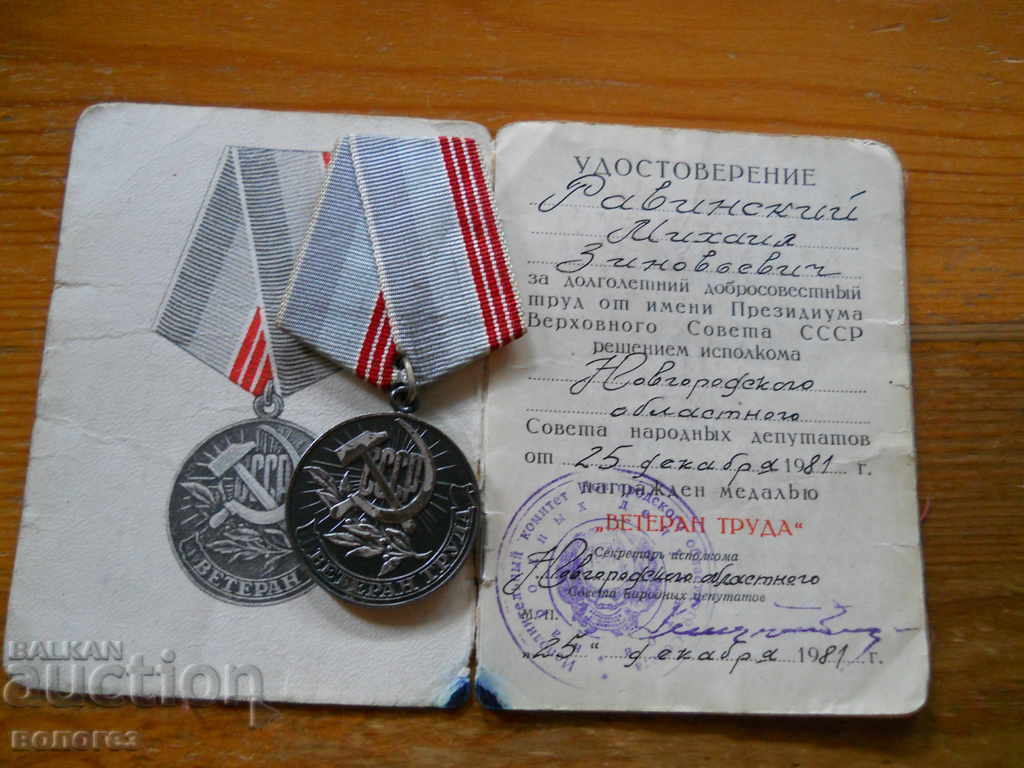 УДОСТОВЕРЕНИЕ
Равинский
Михаил
Зиновьевич
за долголетний добросовестный
труд от имени Президиума
Верховного Совета СССР
решением исполкома
Новгородского
областного
Совета народных депутатов
от 25 декабря 1981 г.
награжден медалью
„ВЕТЕРАН ТРУДА“
Секретарь исполкома
Новгородского областного
Совета народных депутатов
М. П.
„25“ декабря 1981 г.
СССР
ВЕТЕРАН
СССР
ВЕТЕРАН ТРУДА
Исполнительный комитет Новгородского
BALKAN
auction
вологез